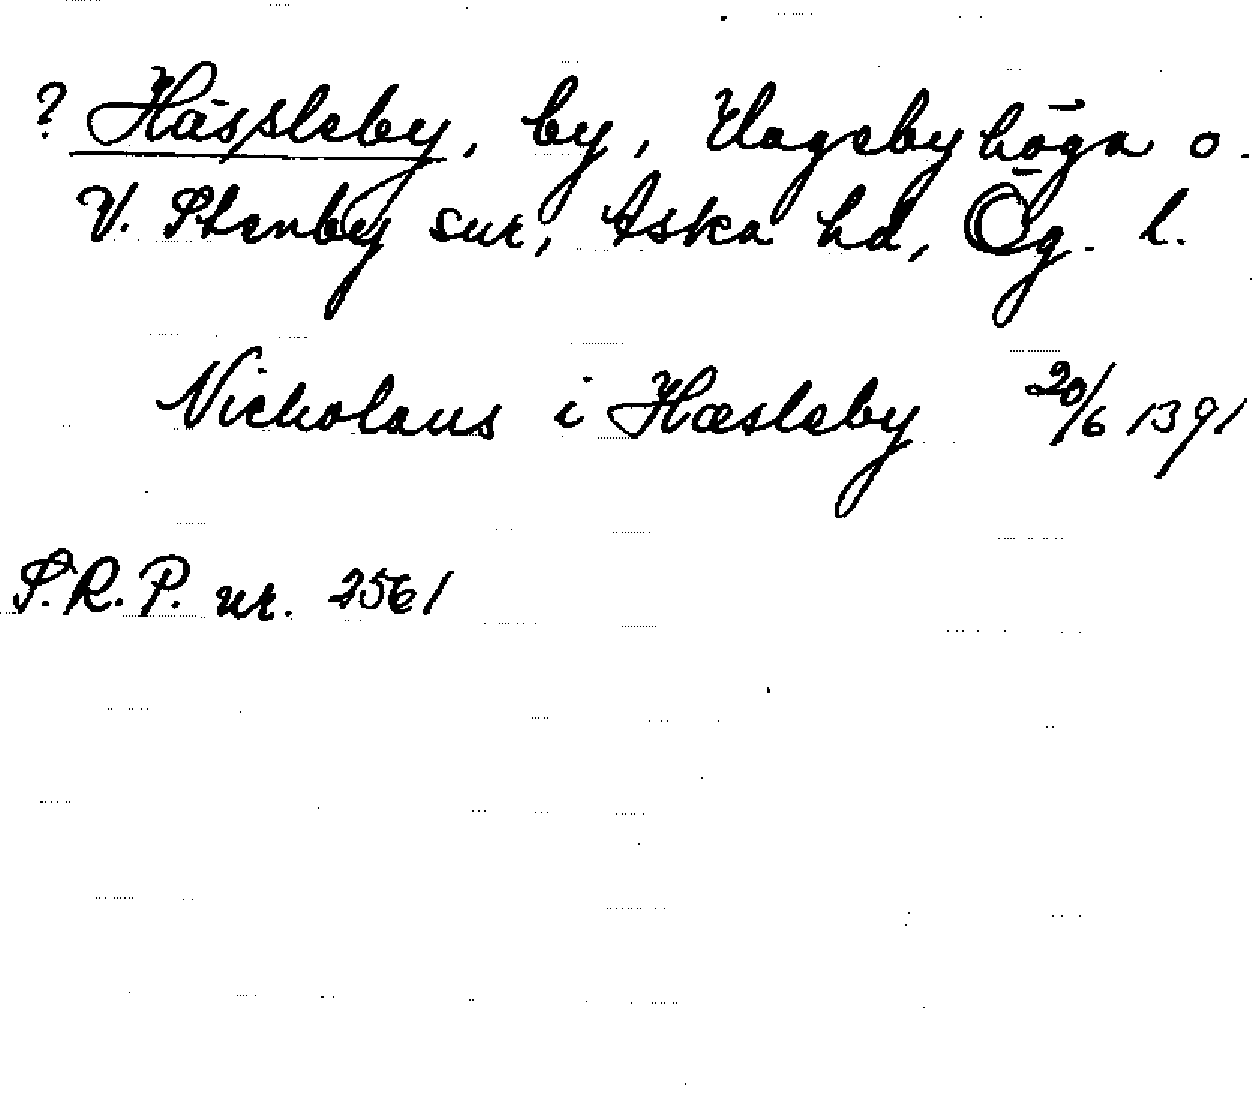 ? Hässleby, by, Hagebyhöga o.
V. Stenby snr, Aska hd, Ög. l.
Nicholaus i Hæsleby 20/6 1391
S.R.P. nr. 2561